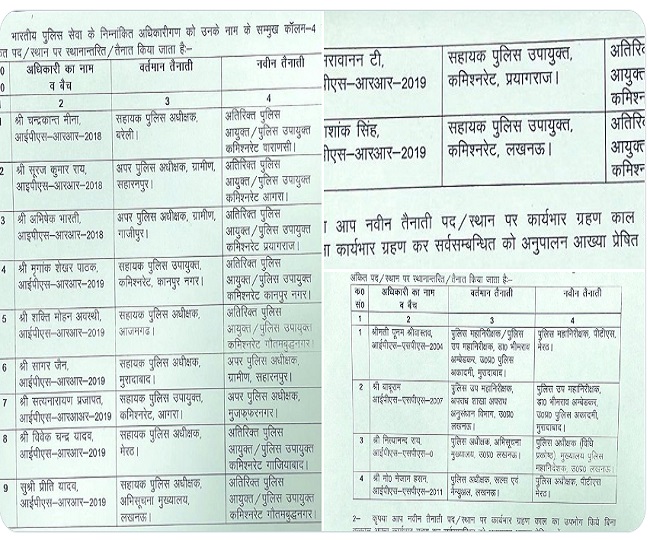 भारतीय पुलिस सेवा के निम्नांकित अधिकारीगण को उनके नाम के सम्मुख कॉलम-4
पद/स्थान पर स्थानान्तरित/तैनात किया जाता हैः-
अधिकारी का नाम व बैच
वर्तमान तैनाती
नवीन तैनाती
2
3
4
श्री चन्द्रकान्त मीना,
आईपीएस-आरआर-2018
सहायक पुलिस अधीक्षक,
बरेली।
अतिरिक्त पुलिस
आयुक्त/पुलिस उपायुक्त
कमिश्नरेट वाराणसी।
2
श्री सूरज कुमार राय,
आईपीएस-आरआर-2018
अपर पुलिस अधीक्षक, ग्रामीण,
सहारनपुर।
अतिरिक्त पुलिस
आयुक्त/पुलिस उपायुक्त
कमिश्नरेट आगरा।
3
श्री अभिषेक भारती,
आइपीएस-आरआर-2018
अपर पुलिस अधीक्षक, ग्रामीण,
गाजीपुर।
अतिरिक्त पुलिस
आयुक्त/पुलिस उपायुक्त
कमिश्नरेट प्रयागराज।
4
श्री मृगांक शेखर पाठक,
आईपीएस-आरआर-2019
सहायक पुलिस उपायुक्त,
कमिश्नरेट, कानपुर नगर।
अतिरिक्त पुलिस
आयुक्त/पुलिस उपायुक्त
कमिश्नरेट कानपुर नगर।
5
श्री शक्ति मोहन अवस्थी,
आईपीएस-आरआर-2019
सहायक पुलिस अधीक्षक,
आजमगढ।
अतिरिक्त पुलिस
आयुक्त/पुलिस उपायुक्त
कमिश्नरेट गौतमबुद्धनगर।
6
श्री सागर जैन,
आईपीएस-आरआर-2019
सहायक पुलिस अधीक्षक,
मुरादाबाद।
अपर पुलिस अधीक्षक
ग्रामीण, सहारनपुर।
7
श्री सत्यनारायण प्रजापत,
आईपीएस-आरआअर-2019
सहायक पुलिस उपायुक्त,
कमिश्नरेट, आगरा।
अपर पुलिस अधीक्षक
मुजफ्फरनगर।
8
श्री विवेक चन्द्र यादव,
आईपीएस-आरआर-2019
सहायक पुलिस अधीक्षक,
मेरठ।
अतिरिक्त पुलिस
आयुक्त/पुलिस उपायुक्त
कमिश्नरेट गाजियाबाद।
9
सुश्री प्रीति यादव,
आईपीएस-आरआर-2019
सहायक पुलिस अधीक्षक,
अभिसूचना मुख्यालय,
लखनऊ।
अतिरिक्त पुलिस
आयुक्त/पुलिस उपायुक्त
कमिश्नरेट गौतमबुद्धनगर।
रावानन टी,
पीएस-आरआर-2019
सहायक पुलिस उपायुक्त,
कमिश्नरेट, प्रयागराज।
शांक सिंह,
पीएस-आरआर-2019
सहायक पुलिस उपायुक्त,
कमिश्नरेट, लखनऊ।
आप नवीन तैनाती पद/स्थान पर कार्यभार ग्रहण काल
कार्यभार ग्रहण कर सर्वसम्बन्धित को अनुपालन आख्या प्रेषित
अंकित पद/स्थान पर स्थानान्तरित/तैनात किया जाता हैः-
क0
सं0
अधिकारी का नाम
व बैच
वर्तमान तैनाती
नवीन तैनाती
1
2
3
4
1
श्रीमती पूनम श्रीवास्तव,
आईपीएस-एसपीएस-2004
पुलिस महानिरीक्षक/पुलिस
उप महानिरीक्षक, डा0 भीमराव
अम्बेडकर, उ0प्र0 पुलिस
अकादमी, मुरादाबाद।
पुलिस महानिरीक्षक, पीटीएस,
मेरठ।
2
श्री बाबूराम
आईपीएस-एसपीएस-2007
पुलिस उप महानिरीक्षक,
अपराध शाखा अपराध
अनुसंधान विभाग, उ0प्र0
लखनऊ।
पुलिस उप महानिरीक्षक,
डा0 भीमराव अम्बेडकर,
उ0प्र0 पुलिस अकादमी,
मुरादाबाद।
3
श्री नित्यानन्द राय,
आईपीएस-एसपीएस-0
पुलिस अधीक्षक, अभिसूचना
मुख्यालय, उ0प्र0 लखनऊ।
पुलिस अधीक्षक (विधि
प्रकोष्ठ) मुख्यालय पुलिस
महानिदेशक, उ0प्र0 लखनऊ।
4
श्री मो0 नेजाम हसन,
आईपीएस-एसपीएस-2011
पुलिस अधीक्षक, रूल्स एवं
मैन्युअल, लखनऊ।
पुलिस अधीक्षक, पीटीएस
मेरठ।
2- कृपया आप नवीन तैनाती पद/स्थान पर कार्यभार ग्रहण काल का उपभोग किये बिना